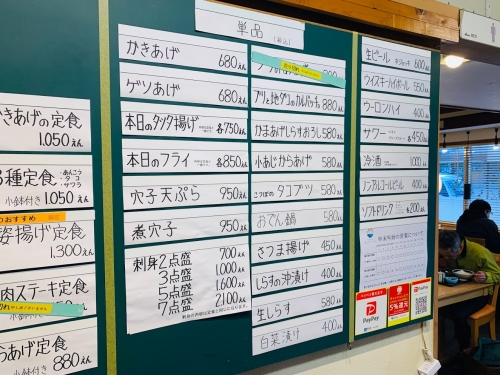 単品 (税込)
かきあげ 680えん
ゲソあげ 680えん
本日のタツタ揚げ 各750えん
本日のフライ 各850えん
穴子天ぷら 950えん
煮穴子 950えん
刺身2点盛 700えん
3点盛 1,000えん
5点盛 1,600えん
7点盛 2,100えん
ブリと地ダコのカルパッチョ 880えん
かまあげしらすおろし 580えん
小あじからあげ 580えん
タコブツ 580えん
おでん鍋 580えん
さつま揚げ 450えん
いらすの沖漬け 400えん
生しらす 580えん
白菜漬け 400えん
生ビール 600えん
ウイスキーハイボール 550えん
ウーロンハイ 400えん
サワー 各450えん
冷酒 1000えん
ノンアルコールビール 400えん
ソフトドリンク 各200えん
きあげの定食
1.050えん
3種定食
小鉢付き 1.050えん
のおすすめ
姿揚げ定食
1,300えん
肉ステーキ定食
小鉢付き
あげ定食
880えん
PayPay
PayPay